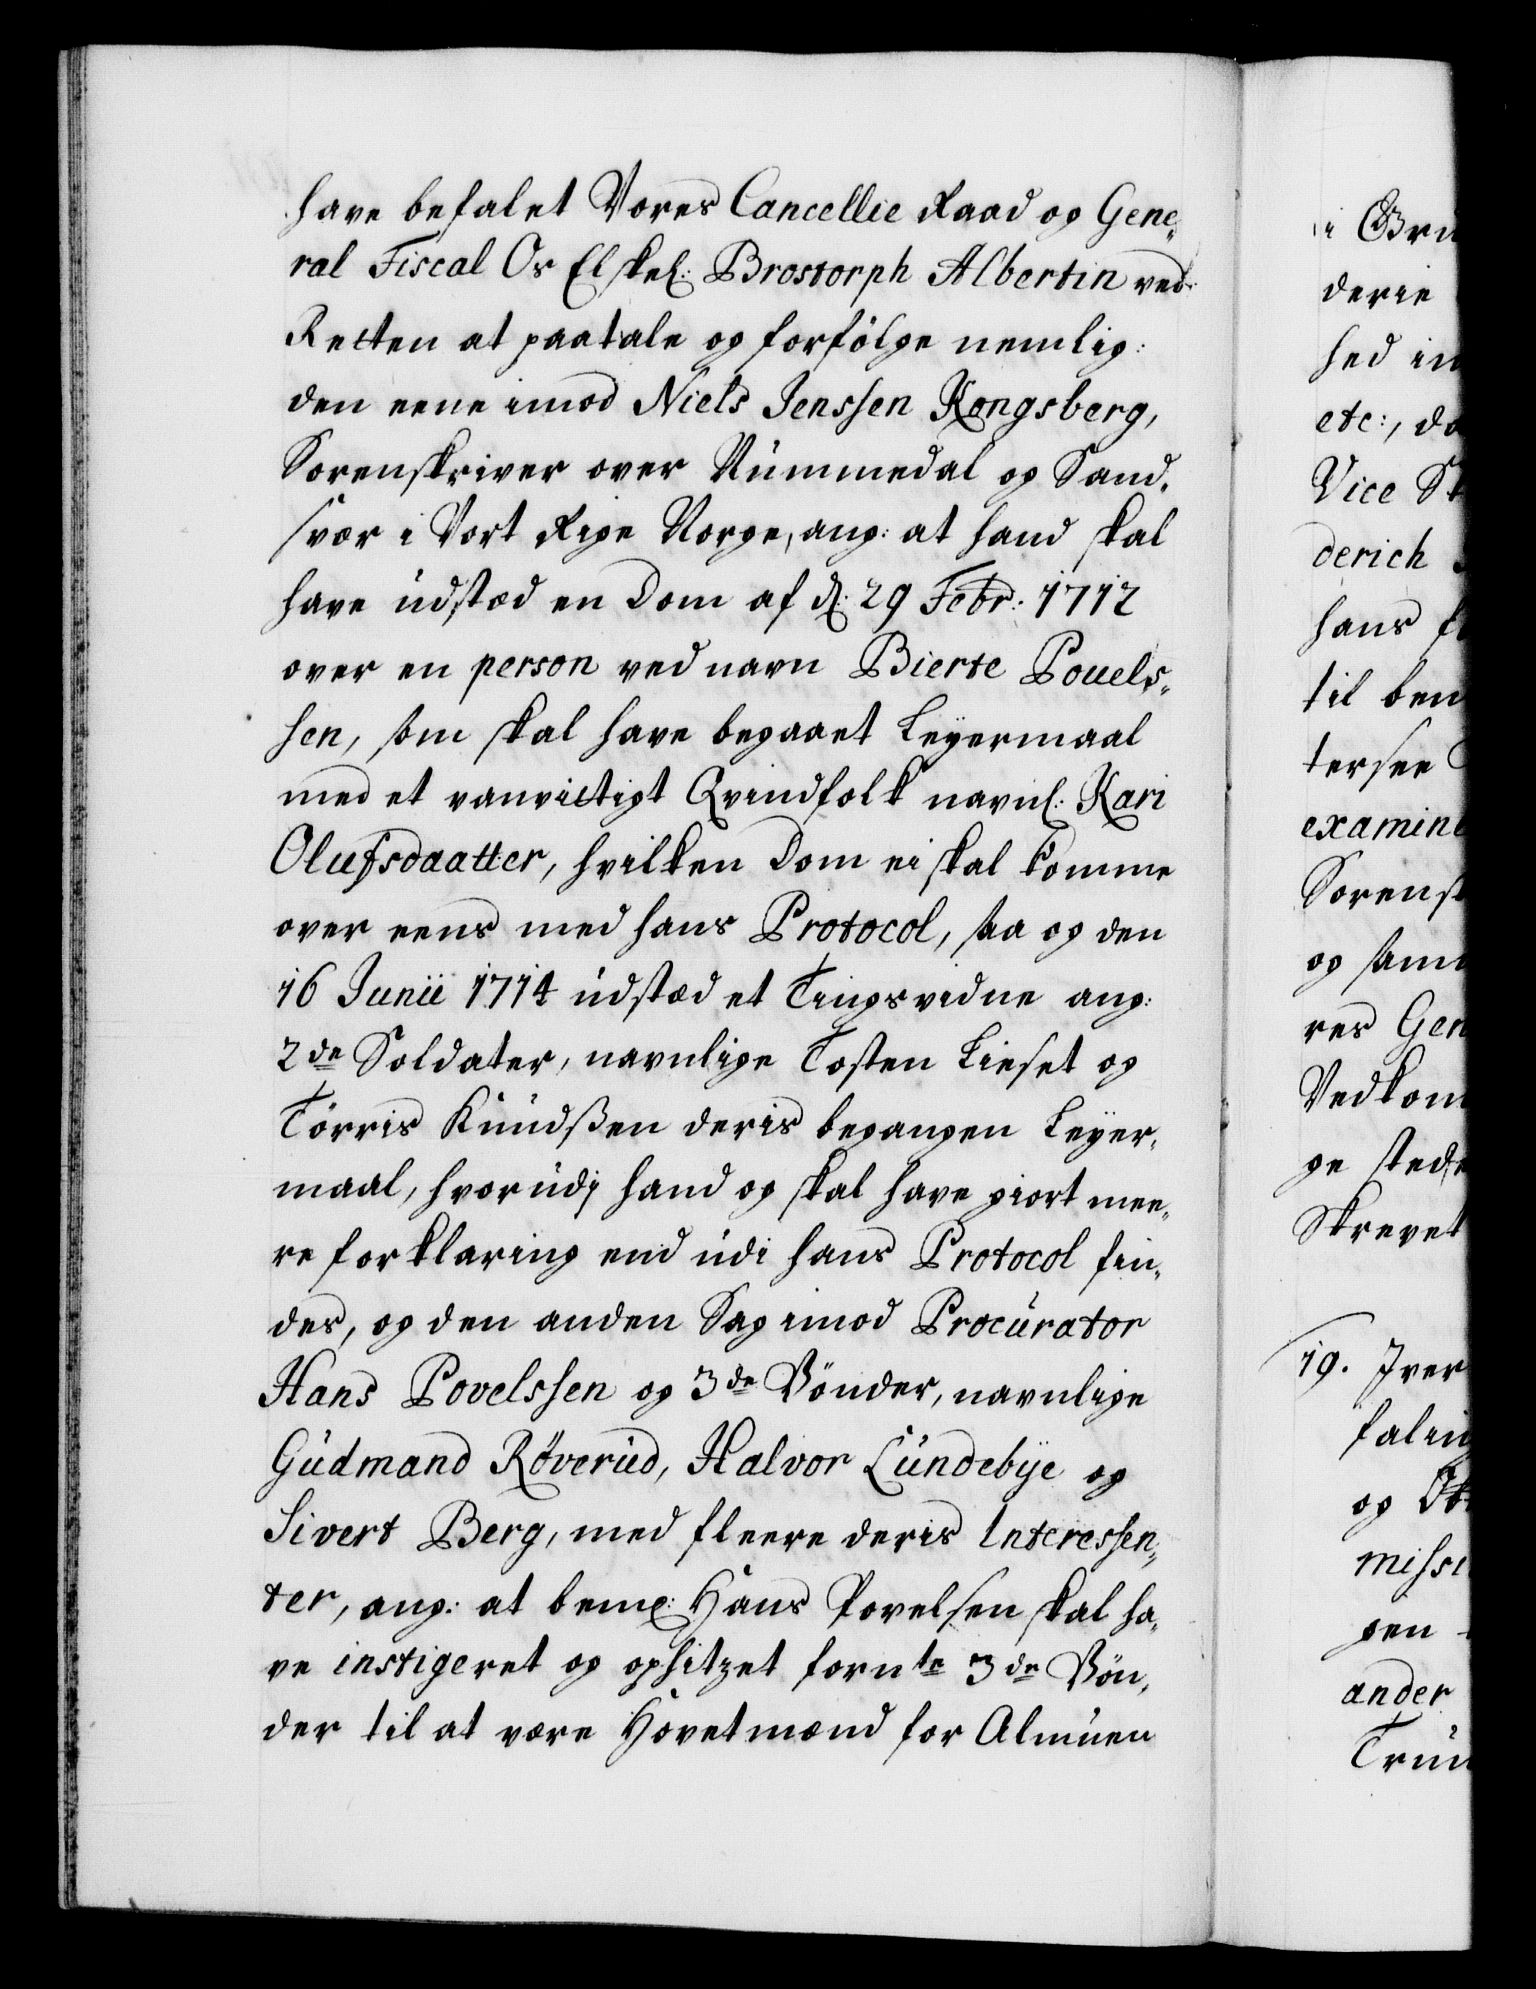 have befalet Vores Cancellie Raad og Gene„
ral Fiscal Os Elskel: Brostorph Albertin ved
Retten at paatale og forfölge nemlig:
den eene imod Niels Jenssen Kongsberg,
Sorenskriver over Nummedal og Sand„
svær i Vort Rige Norge, ang: at hand skal
have udstæd en Dom af d: 29 Febr: 1712
over en person ved navn Bierte Pouels„
sen, som skal have begaaet Leyermaal
med et vanvittigt Qvindfolk navnl: Kari
Olufsdaatter, hvilken Dom ei skal komme
over eens med hans Protocol, saa og den
16 Junii 1714 udstæd et Tingsvidne ang:
2de Soldater, navnlige Tosten Lieset og
Törris Knudßen deris begangen Leyer„
maal, hvorudj hand og skal have giort mee„
re forklaring end udi hans Protocol fin„
des, og den anden Sag imod Procurator
Hans Povelssen og 3de Bönder, navnlige
Gudmand Röverud, Halvor Lundebye og
Sivert Berg, med fleere deris Interessen„
ter, ang: at bem: Hans Povelsen skal ha„
ve instigeret og ophitzet fornte 3de Bön„
der til at være Hovetmænd for Almuen
i Gru
derie
hed in
etc:, da
Vice St
derich
hans f
til ben
tersee
examine
Sorensk
og sam
res Gen
Vedkom
ge stede
Skrevet
19. Iver
falin
og Ob
missi
gen
ander
Trun